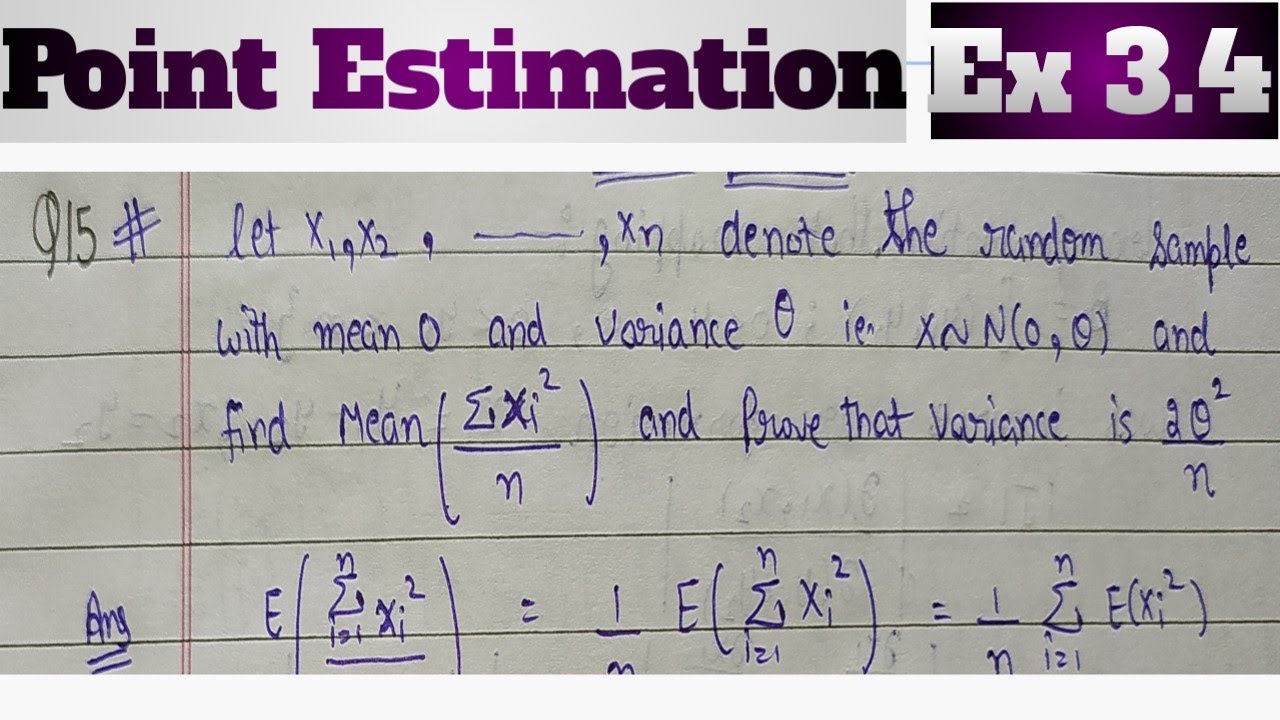 Point Estimation Ex 3.4
Q15 # let x₁, x₂, ——, xn denote the random sample
with mean 0 and variance θ ie. X~N(0, θ) and
find Mean (Σxi²/n) and Prove that variance is 2θ²/n
Ans E(Σⁿᵢ₌₁ xi²) = 1/n E(Σⁿᵢ₌₁ xi²) = 1/n Σⁿᵢ₌₁ E(xi²)